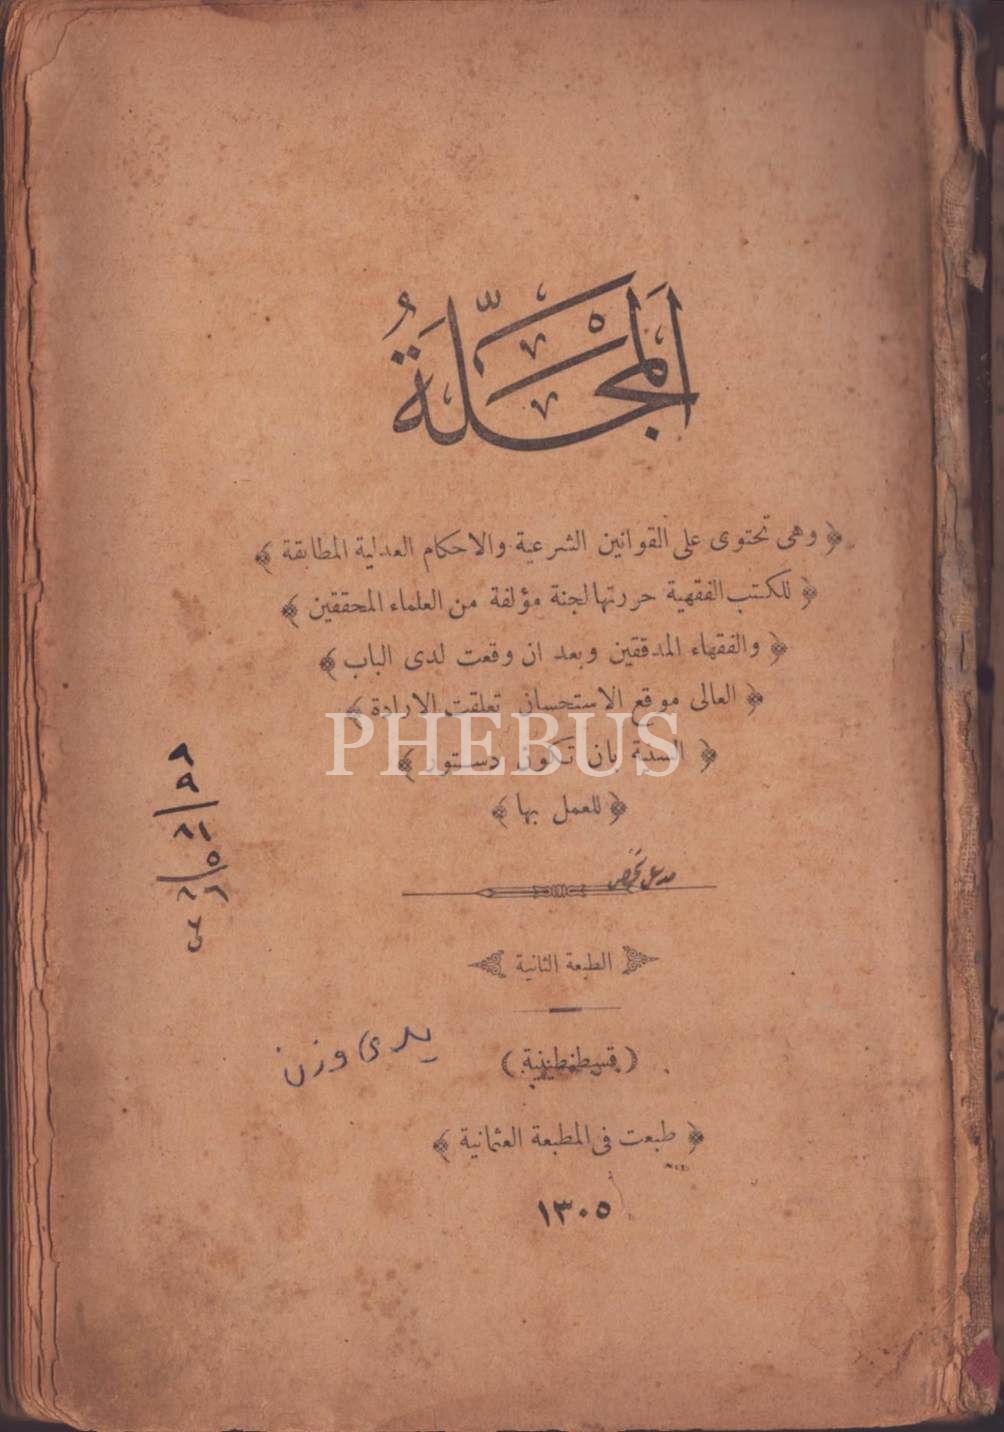 اَلْمَجَلَّةُ
﴿ وهى تحتوى على القوانين الشرعية والاحكام العدلية المطابقة ﴾
﴿ للكتب الفقهية حررتها لجنة مؤلفة من العلماء المحققين ﴾
﴿ والفقهاء المدققين وبعد ان وقعت لدى الباب ﴾
﴿ العالى موقع الاستحسان تعلقت الارادة ﴾
PHEBUS
﴿ السنية بان تكون دستور ﴾
﴿ للعمل بها ﴾
﴿ الطبعة الثانية ﴾
( قسطنطينية )
وزن
﴿ طبعت فى المطبعة العثمانية ﴾
١٣٠٥